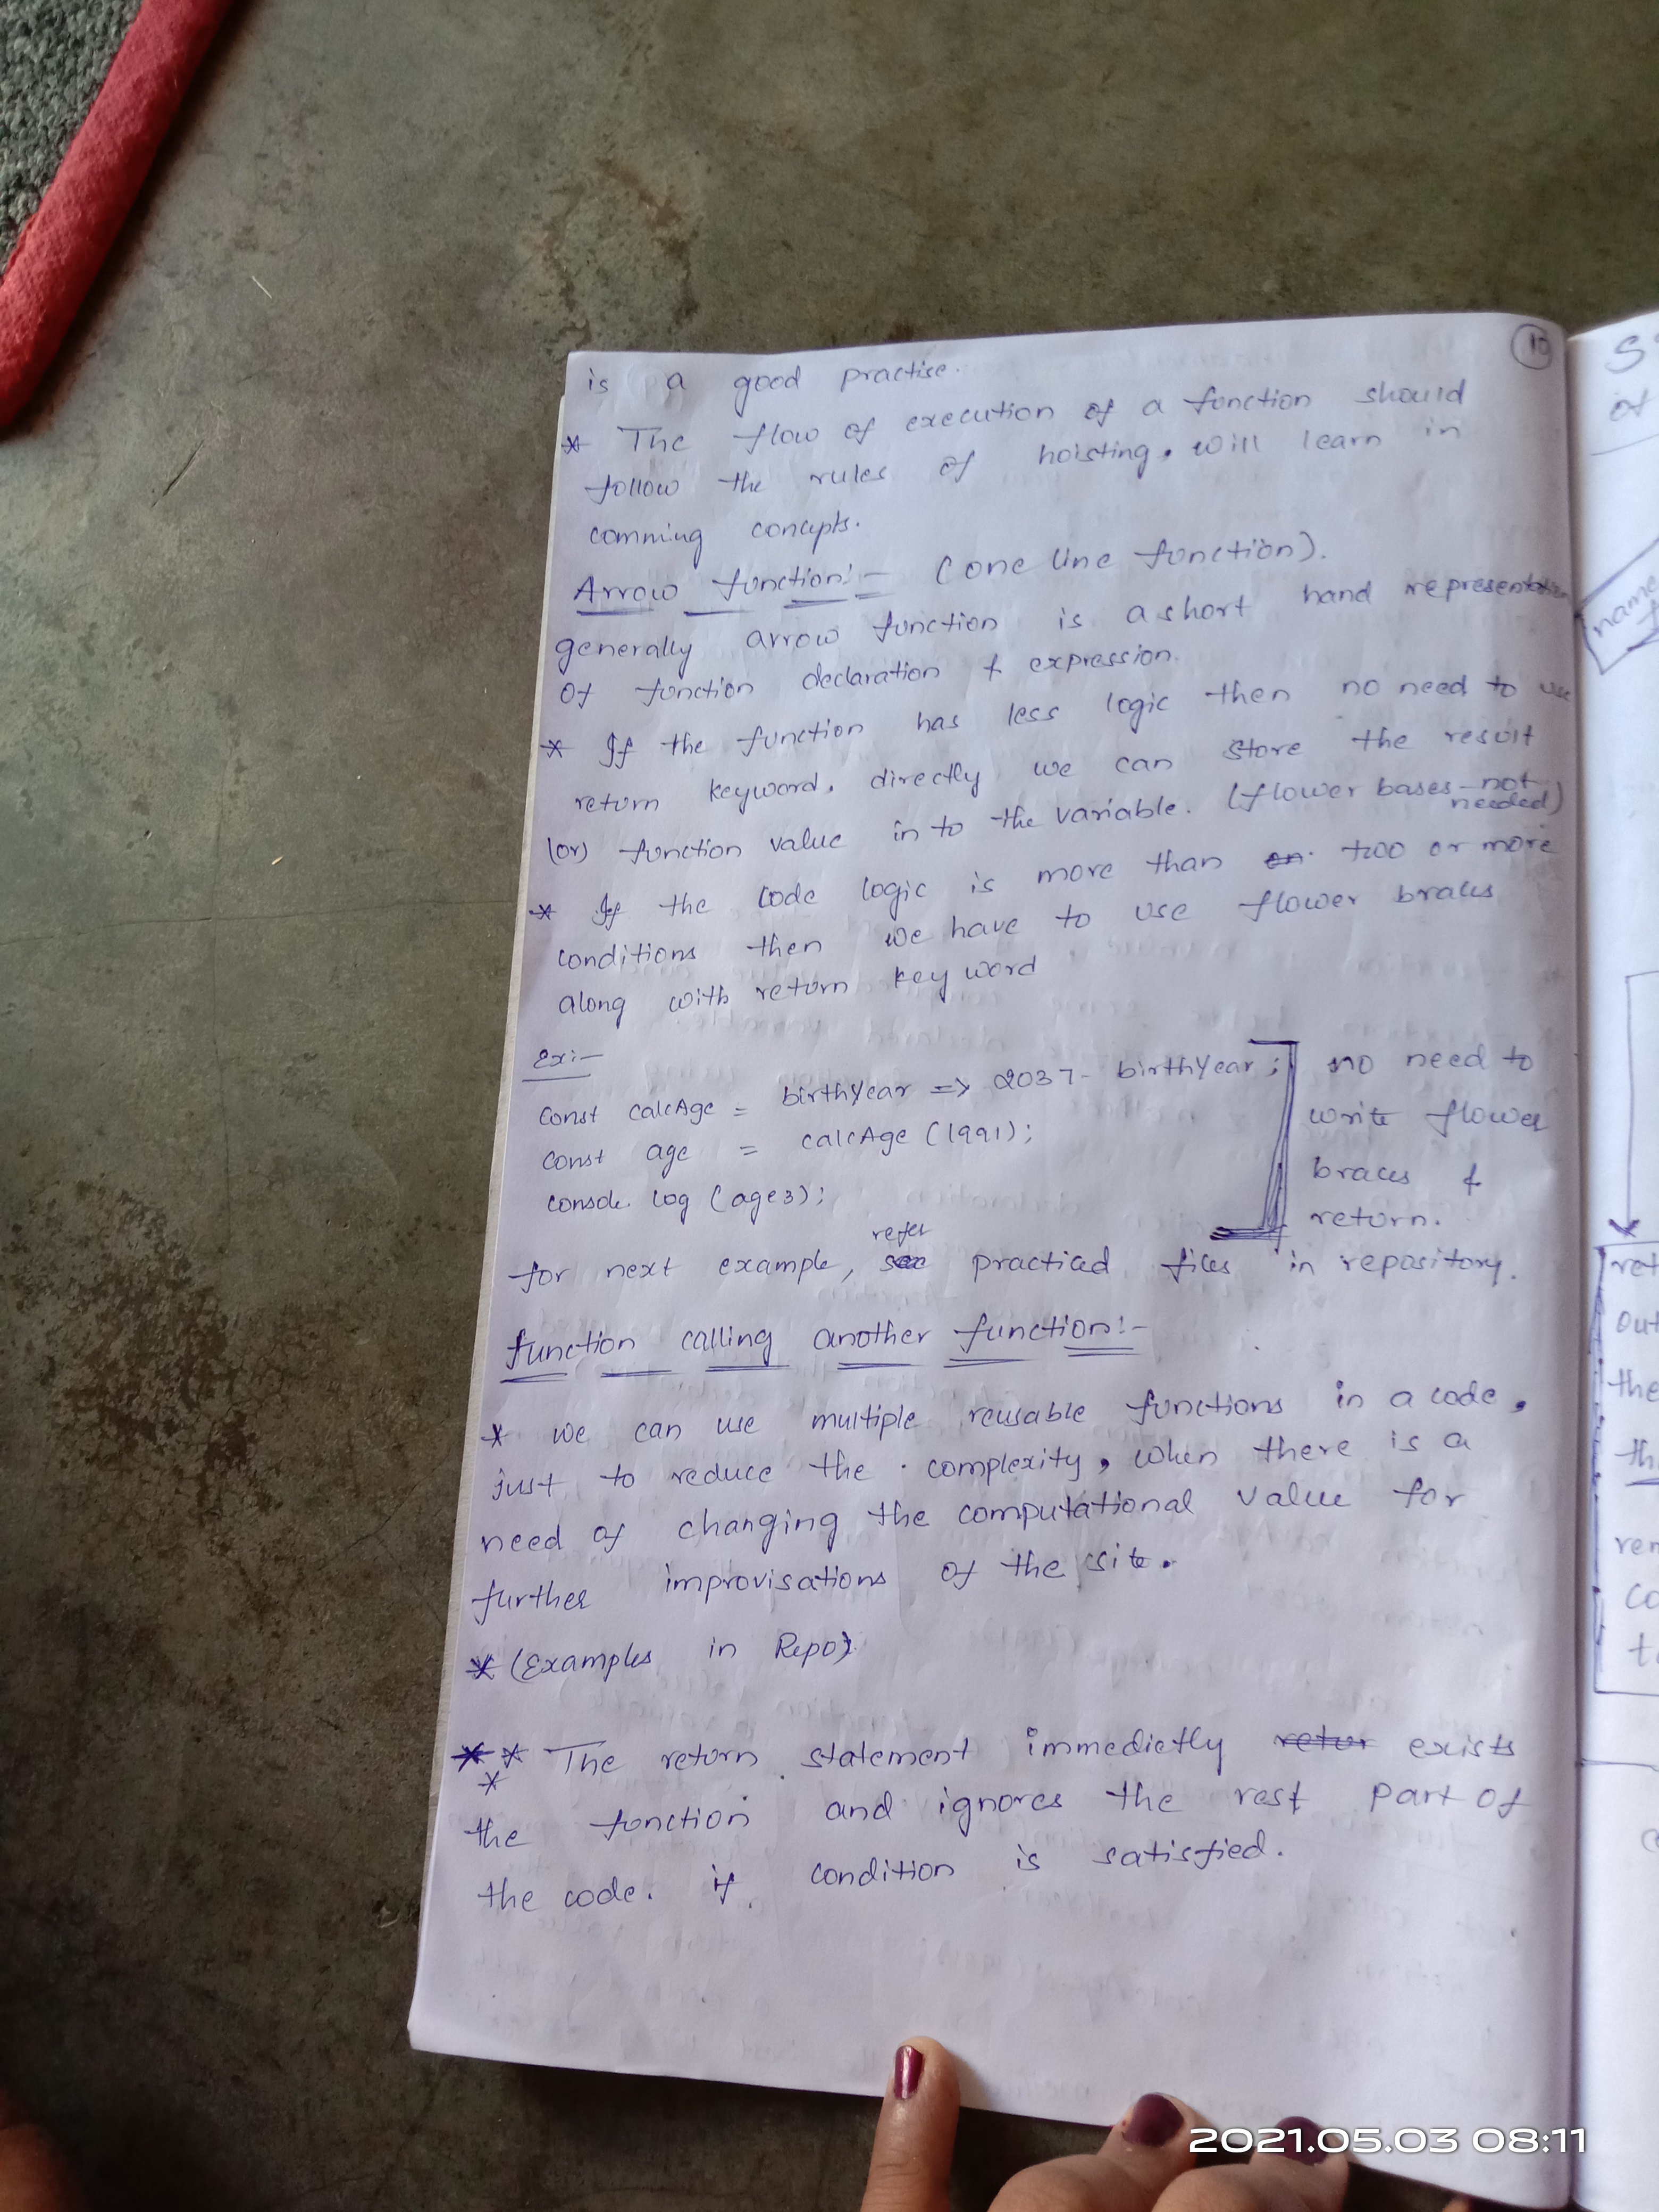 10
is a good practise.
* The flow of execution of a function should
follow the rules of hoisting, will learn in
comming concepts.
Arrow function:- (one line function).
generally arrow function is a short hand representation
of function declaration & expression.
* If the function has less logic then no need to use
return keyword, directly we can store the result
(or) function value in to the variable. (flower bases not needed)
* If the code logic is more than two or more
conditions then we have to use flower braces
along with return key word
Ex:-
const calcAge = birthYear => 2037 - birthYear;
const age = calcAge (1991);
console.log (age3);
no need to
write flower
braces &
return.
for next example, refer practiced files in repository.
function calling another function:-
* we can use multiple reusable functions in a code,
just to reduce the complexity, when there is a
need of changing the computational value for
further improvisations of the site.
* (Examples in Repo).
*** The return statement immedietly exists
the function and ignores the rest part of
the code. if condition is satisfied.
name
ret
out
the
th
rem
co
2021.05.03 08:11